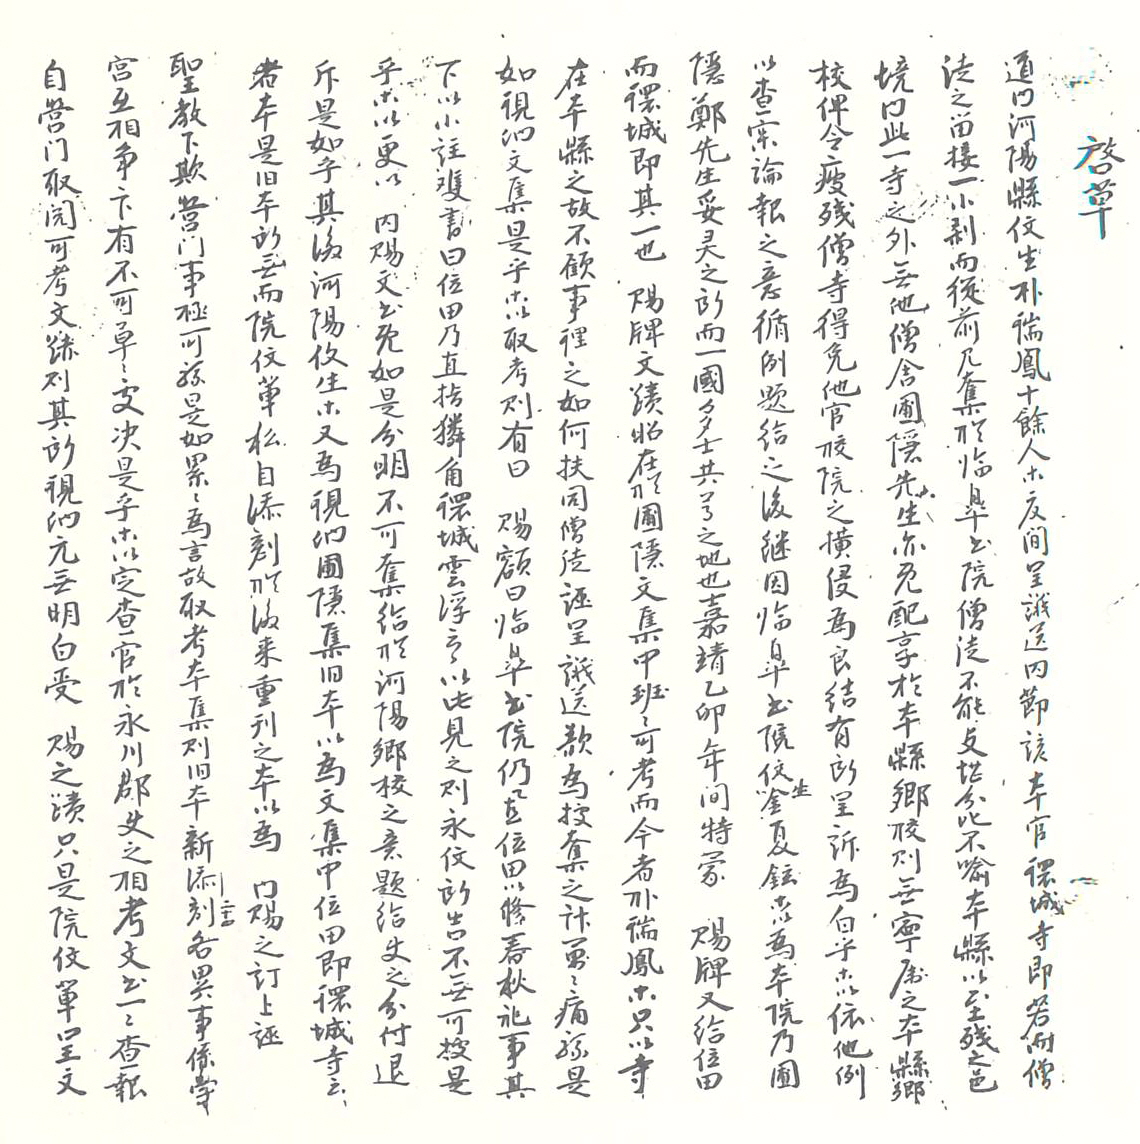 啓草
道內河陽縣伩生朴瑞鳳十餘人等度間呈議送內節該本官環城寺卽若爾僧
徒之留接一小刹而從前見奪於臨皐書院僧徒不能支堪分叱不喩本縣以至殘之邑
境內此一寺之外無他僧舍圃隱先生亦免配享於本縣鄕校則無寧屬之本縣鄕
校俾令疲殘僧寺得免他官校院之橫侵爲良結有所呈訴爲白乎等以依他例
以查案論報之意循例題給之後繼因臨皐書院伩生金夏鉉等以爲本院乃圃
隱鄭先生妥灵之所而一國多士共尊之地也嘉靖乙卯年間特蒙 賜牌又給位田
而環城卽其一也 賜牌文蹟昭在於圃隱文集中班班可考而今者朴瑞鳳等只以寺
在本縣之故不顧事理之如何扶同僧徒誣呈議送欲爲授奪之計萬萬痛駭是
如視們文集是乎等以取考則有曰 賜額曰臨皐書院仍置位田以修春秋祀事其
下以小註雙書曰位田乃直指獜角環城雲浮云以此見之則永伩所告不無可授是
乎等以更以 內賜文書旣如是分明不可奪給於河陽鄕校之意題給更之分付退
斥是如乎其後河陽伩生等又爲視們圃隱集旧本以爲文集中位田卽環城寺云
者本是旧本所無而院伩輩私自添刻於後來重刊之本以爲 內賜之訂上誣
聖教下欺營門事極可駭是如累累爲言故取考本集則旧本新添刻各異事係學
宮互相爭卞有不可草草處決是乎等以定查官於永川郡使之相考文書一一查報
自營門取閱可考文蹟則其所視們元無明白受 賜之蹟只是院伩輩呈文